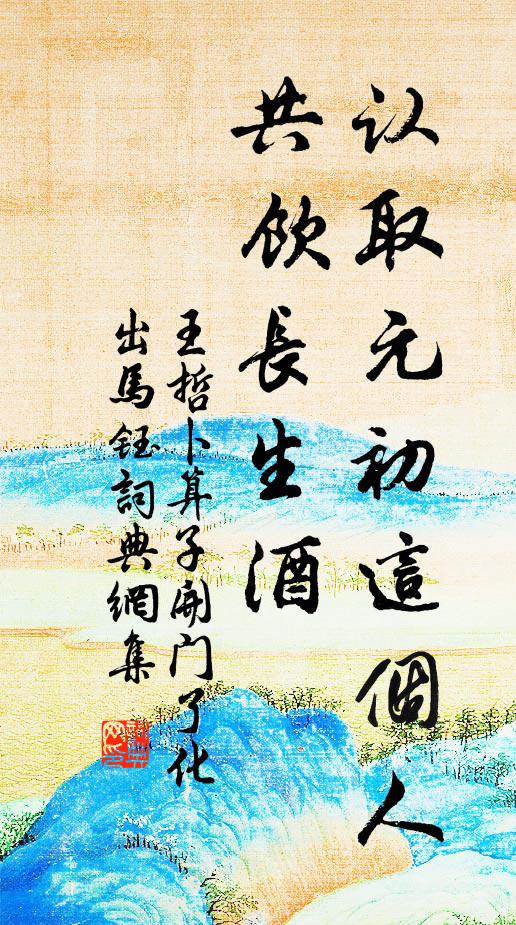 认取元初這個人
共飲長生酒
王哲卜算子開門了化
出馬鈺詞典網集